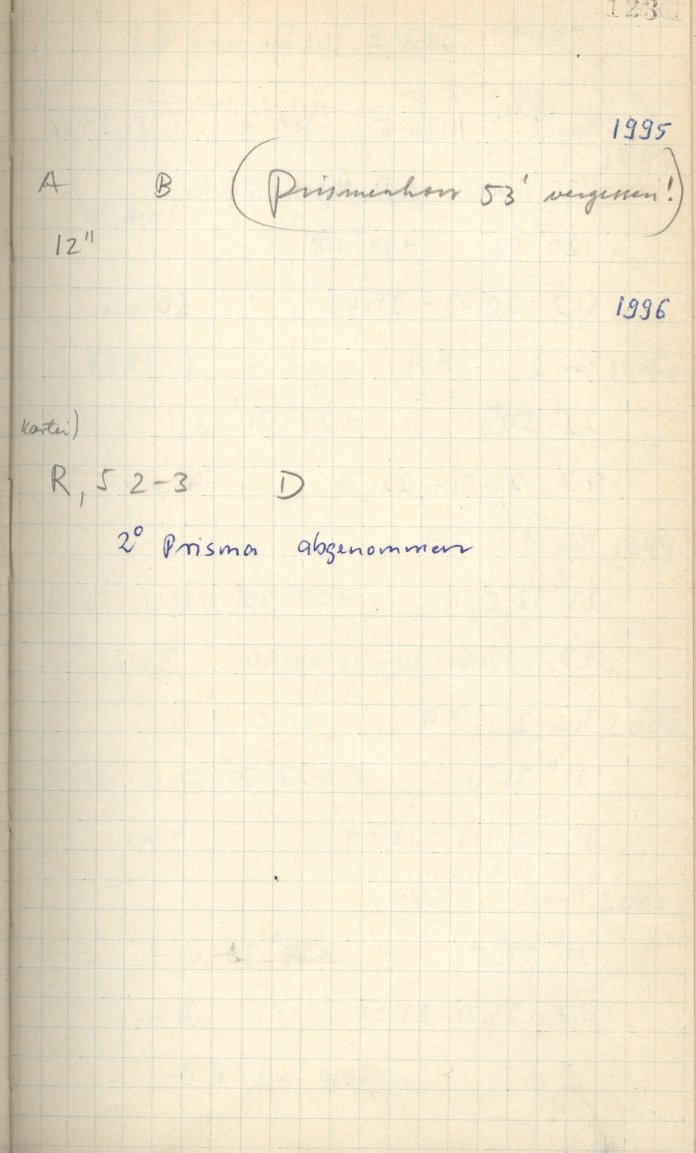 123
1995
A B (Prismenkorr 53' vergessen!)
12"
1996
Kartei)
R, 5 2-3 D
2° Prisma abgenommen